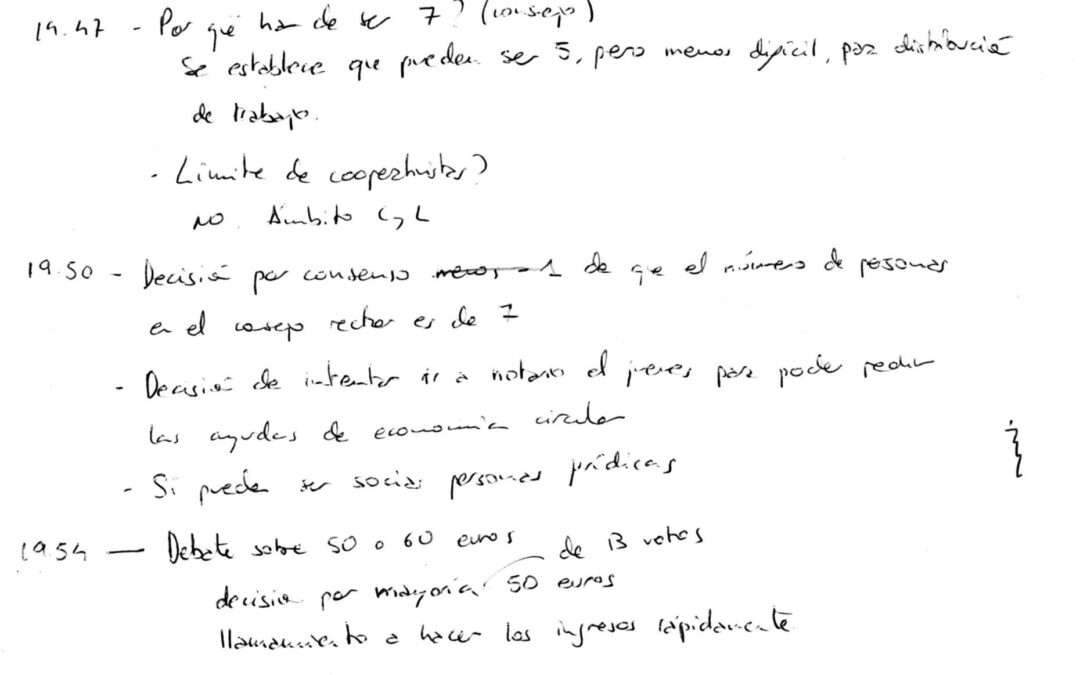 19.47 - Por qué han de ser 7? (consejo)
Se establece que pueden ser 5, pero menos difícil, para distribución
de trabajo.
- Límite de cooperativistas?
NO. Ámbito CyL
19.50 - Decisión por consenso menos - 1 de que el número de personas
en el consejo rector es de 7
- Decisión de intentar ir a notario el jueves para poder pedir
las ayudas de economía circular
- Si pueden ser socias personas jurídicas
19.54 — Debate sobre 50 o 60 euros de 13 votos
decisión por mayoría 50 euros
llamamiento a hacer los ingresos rápidamente